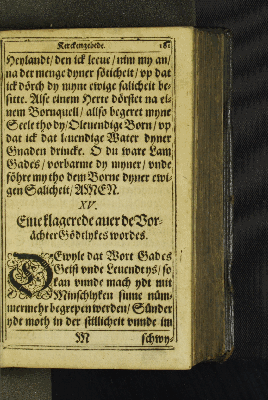 Kerckengebede. 181
Heylandt/ den ick leeue/ nim my an/
na der menge dyner söticheit/ vp dat
ick dörch dy myne ewige salicheit be-
sitte. Alse einem Herte dörstet na ei-
nem Bornquell/ allso begeret myne
Seele tho dy/ O leuendige Born/ vp
dat ick dat leuendige Water dyner
Gnaden drincke. O du ware Lam
Gades/ vorbarme dy myner/ vnde
föhre my tho dem Borne dyner ewi-
gen Salicheit/ AMEN.
XV.
Eine klagerede auer de Vor-
ächter Gödtlykes wordes.
DEwyle dat Wort Gades/
Geist vnde Leuendt ys/ so
kan vnde mach ydt mit
Minschlyken sinne nüm-
mermehr begrepen werden/ Sünder
ydt moth in der stillicheit vnde im
M schwy-